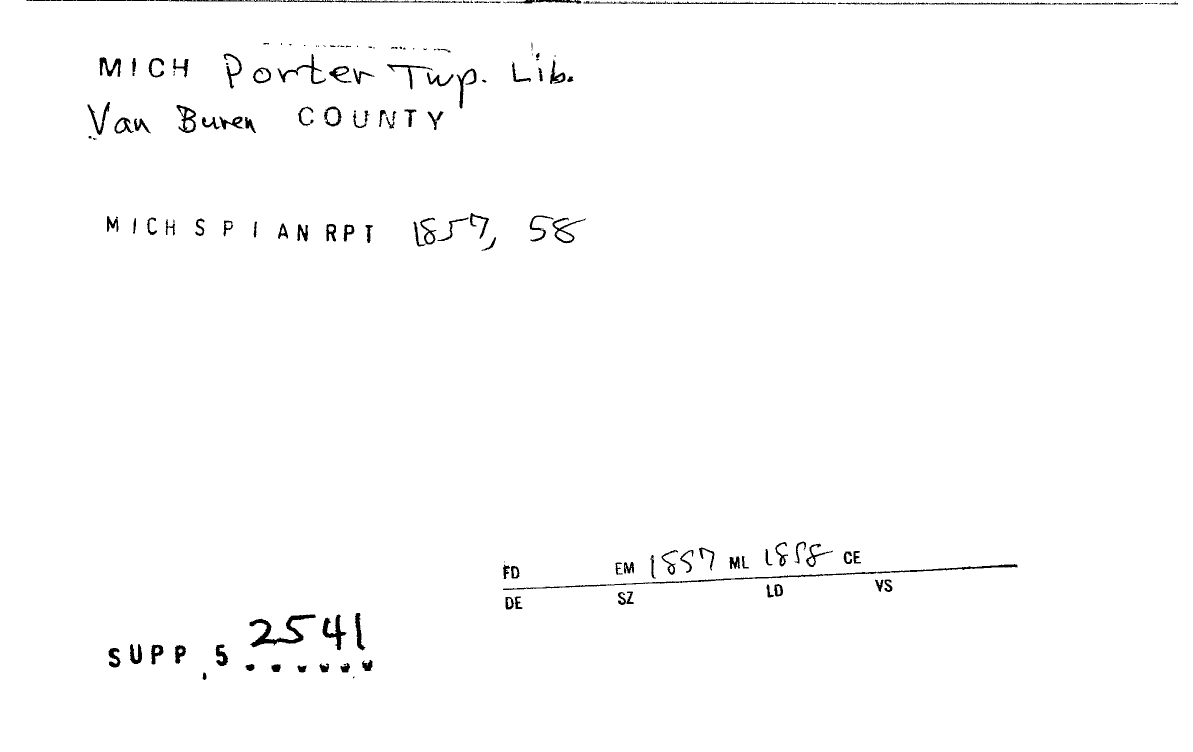 MICH Porter Twp. Lib.
Van Buren COUNTY
MICH S P I AN RPT 1857, 58
FD EM 1857 ML 1858 CE
DE SZ LD VS
SUPP.5 2541